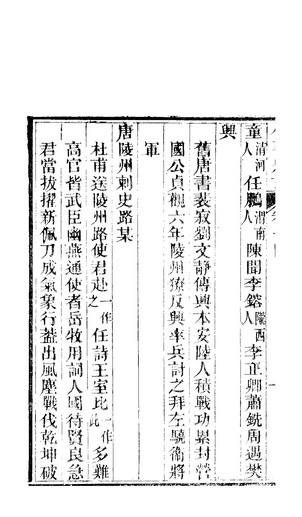 童清河人任鵬渭南人陳聞李鎔隴西人李正卿蕭銑周遇樊
興
舊唐書裴寂劉文靜傳興本安陸人積戰功累封營
國公貞觀六年陵州獠反興率兵討之拜左驍衞將
軍
唐陵州刺史路某
杜甫送陵州路使君赴一作之任詩王室比一作此多難
高官皆武臣幽燕通使者岳牧用詞人國待賢良急
君當拔擢新佩刀成氣象行蓋出風塵戰伐乾坤破